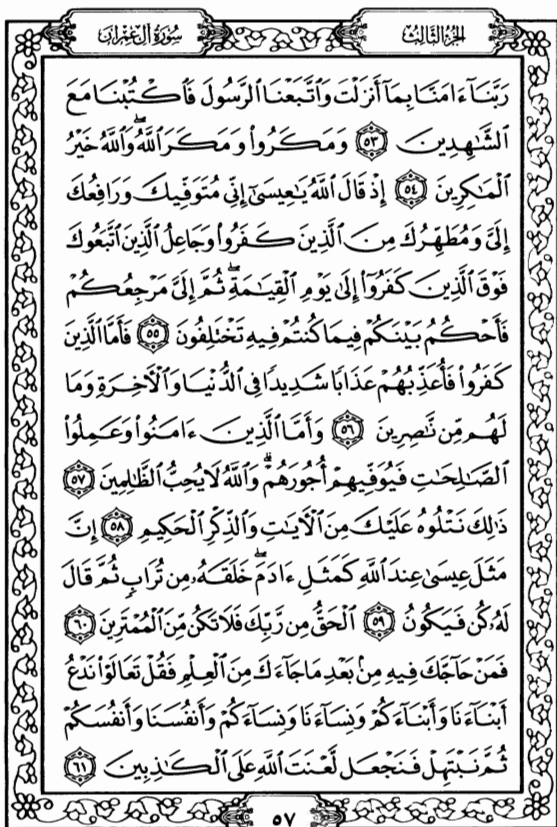 سُورَةُ آلِ عِمْرَان
الجُزْءُ الثَّالِثُ
رَبَّنَآ ءَامَنَّا بِمَآ أَنزَلْتَ وَٱتَّبَعْنَا ٱلرَّسُولَ فَٱكْتُبْنَا مَعَ
ٱلشَّٰهِدِينَ ٥٣ وَمَكَرُوا۟ وَمَكَرَ ٱللَّهُ ۖ وَٱللَّهُ خَيْرُ
ٱلْمَٰكِرِينَ ٥٤ إِذْ قَالَ ٱللَّهُ يَٰعِيسَىٰٓ إِنِّى مُتَوَفِّيكَ وَرَافِعُكَ
إِلَىَّ وَمُطَهِّرُكَ مِنَ ٱلَّذِينَ كَفَرُوا۟ وَجَاعِلُ ٱلَّذِينَ ٱتَّبَعُوكَ
فَوْقَ ٱلَّذِينَ كَفَرُوٓا۟ إِلَىٰ يَوْمِ ٱلْقِيَٰمَةِ ۖ ثُمَّ إِلَىَّ مَرْجِعُكُمْ
فَأَحْكُمُ بَيْنَكُمْ فِيمَا كُنتُمْ فِيهِ تَخْتَلِفُونَ ٥٥ فَأَمَّا ٱلَّذِينَ
كَفَرُوا۟ فَأُعَذِّبُهُمْ عَذَابًا شَدِيدًا فِى ٱلدُّنْيَا وَٱلْءَاخِرَةِ وَمَا
لَهُم مِّن نَّٰصِرِينَ ٥٦ وَأَمَّا ٱلَّذِينَ ءَامَنُوا۟ وَعَمِلُوا۟
ٱلصَّٰلِحَٰتِ فَيُوَفِّيهِمْ أُجُورَهُمْ ۗ وَٱللَّهُ لَا يُحِبُّ ٱلظَّٰلِمِينَ ٥٧
ذَٰلِكَ نَتْلُوهُ عَلَيْكَ مِنَ ٱلْءَايَٰتِ وَٱلذِّكْرِ ٱلْحَكِيمِ ٥٨ إِنَّ
مَثَلَ عِيسَىٰ عِندَ ٱللَّهِ كَمَثَلِ ءَادَمَ ۖ خَلَقَهُۥ مِن تُرَابٍ ثُمَّ قَالَ
لَهُۥ كُن فَيَكُونُ ٥٩ ٱلْحَقُّ مِن رَّبِّكَ فَلَا تَكُن مِّنَ ٱلْمُمْتَرِينَ ٦٠
فَمَنْ حَآجَّكَ فِيهِ مِنۢ بَعْدِ مَا جَآءَكَ مِنَ ٱلْعِلْمِ فَقُلْ تَعَالَوْا۟ نَدْعُ
أَبْنَآءَنَا وَأَبْنَآءَكُمْ وَنِسَآءَنَا وَنِسَآءَكُمْ وَأَنفُسَنَا وَأَنفُسَكُمْ
ثُمَّ نَبْتَهِلْ فَنَجْعَل لَّعْنَتَ ٱللَّهِ عَلَى ٱلْكَٰذِبِينَ ٦١
٥٧